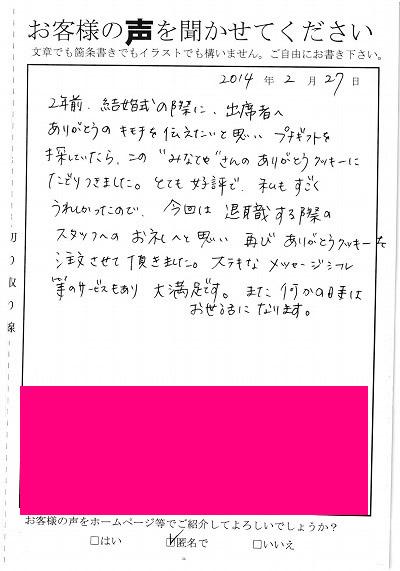 お客様の声を聞かせてください
文章でも箇条書きでもイラストでも構いません。ご自由にお書き下さい。
2014 年 2 月 27 日
2年前、結婚式の際に、出席者へ
ありがとうのキモチを伝えたいと思い プチギフトを
探していたら、この"みなてや"さんの ありがとうクッキーに
たどりつきました。とても好評で、私もすごく
うれしかったので、今回は 退職する際の
スタッフへの お礼へと思い 再び ありがとうクッキーを
注文させて頂きました。ステキな メッセージシール
等のサービスもあり 大満足です。また 何かの時は
お世話になります。
切り取り線
お客様の声をホームページ等でご紹介してよろしいでしょうか?
□はい ☑匿名で □いいえ